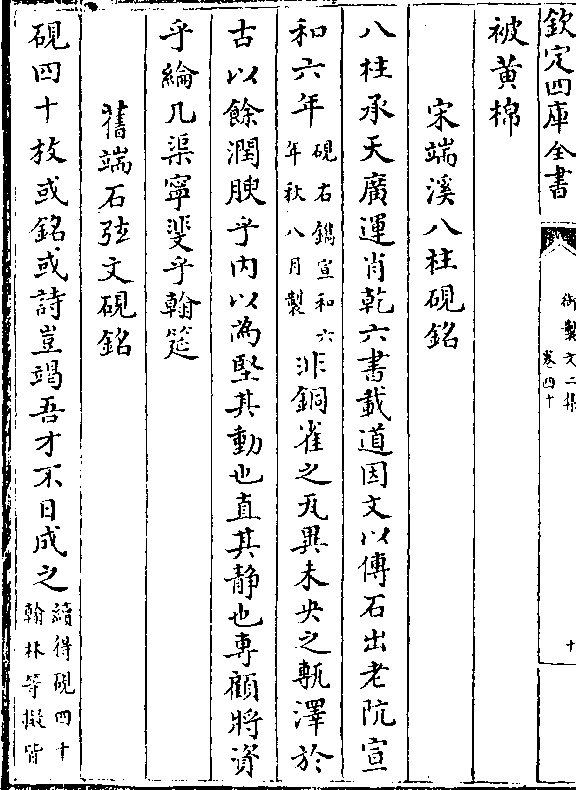 欽定四庫全書
御製文二集
卷四十
十
被黄棉
宋端溪八柱硯銘
八柱承天廣運肖乾六書載道因文以傳石出老阬宣
和六年硯右鐫宣和六年秋八月製非銅雀之瓦異未央之甎澤於
古以餘潤腴乎内以為堅其動也直其静也專顧將資
乎綸几渠寧斐乎翰筵
舊端石弦文硯銘
硯四十放或銘或詩豈竭吾才不日成之續得硯四十翰林等擬皆